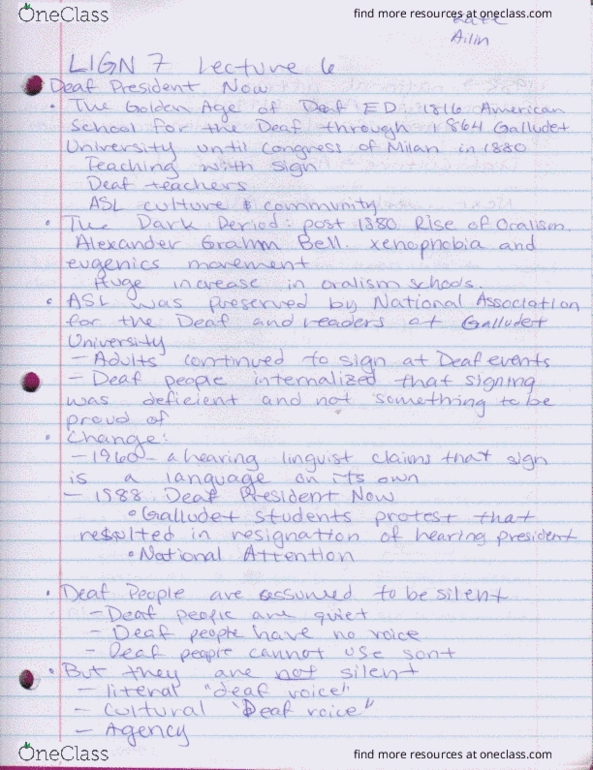 OneClass
find more resources at oneclass.com
Ailin
LIGN 7 Lecture 6
Deaf President Now
• The Golden Age of Deaf ED 1816 American
School for the Deaf through 1864 Galludet
University until Congress of Milan in 1880
Teaching with sign
Deaf teachers
ASL culture & community
• The Dark Period: post 1880 Rise of Oralism.
Alexander Grahm Bell. xenophobia and
eugenics movement
Huge increase in oralism schools.
• ASL was preserved by National Association
for the Deaf and leaders at Galludet
University
- Adults continued to sign at Deaf events
- Deaf people internalized that signing
was deficient and not something to be
proud of
• Change:
- 1960 - a hearing linguist claims that sign
is a language on its own
- 1988 Deaf President Now
• Galludet students protest that
resulted in resignation of hearing president
• National Attention
• Deaf People are assumed to be silent
- Deaf people are quiet
- Deaf people have no voice
- Deaf people cannot use
• But they are not silent
- literal "deaf voice"
- cultural "Deaf voice"
- Agency
OneClass
find more resources at oneclass.com